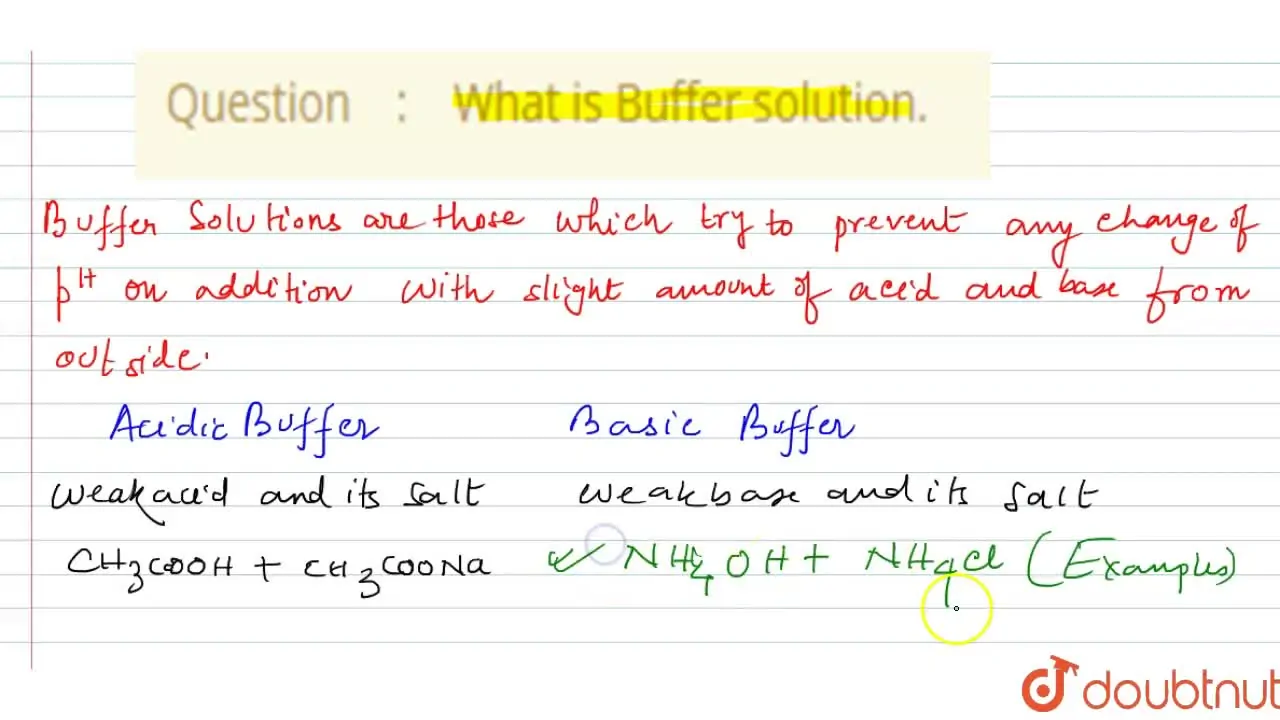 Question : What is Buffer solution.
Buffer Solutions are those which try to prevent any change of
pH on addition with slight amount of acid and base from
outside.
Acidic Buffer Basic Buffer
weak acid and its salt weak base and its salt
CH3COOH + CH3COONa NH4OH + NH4Cl (Examples)
doubtnut